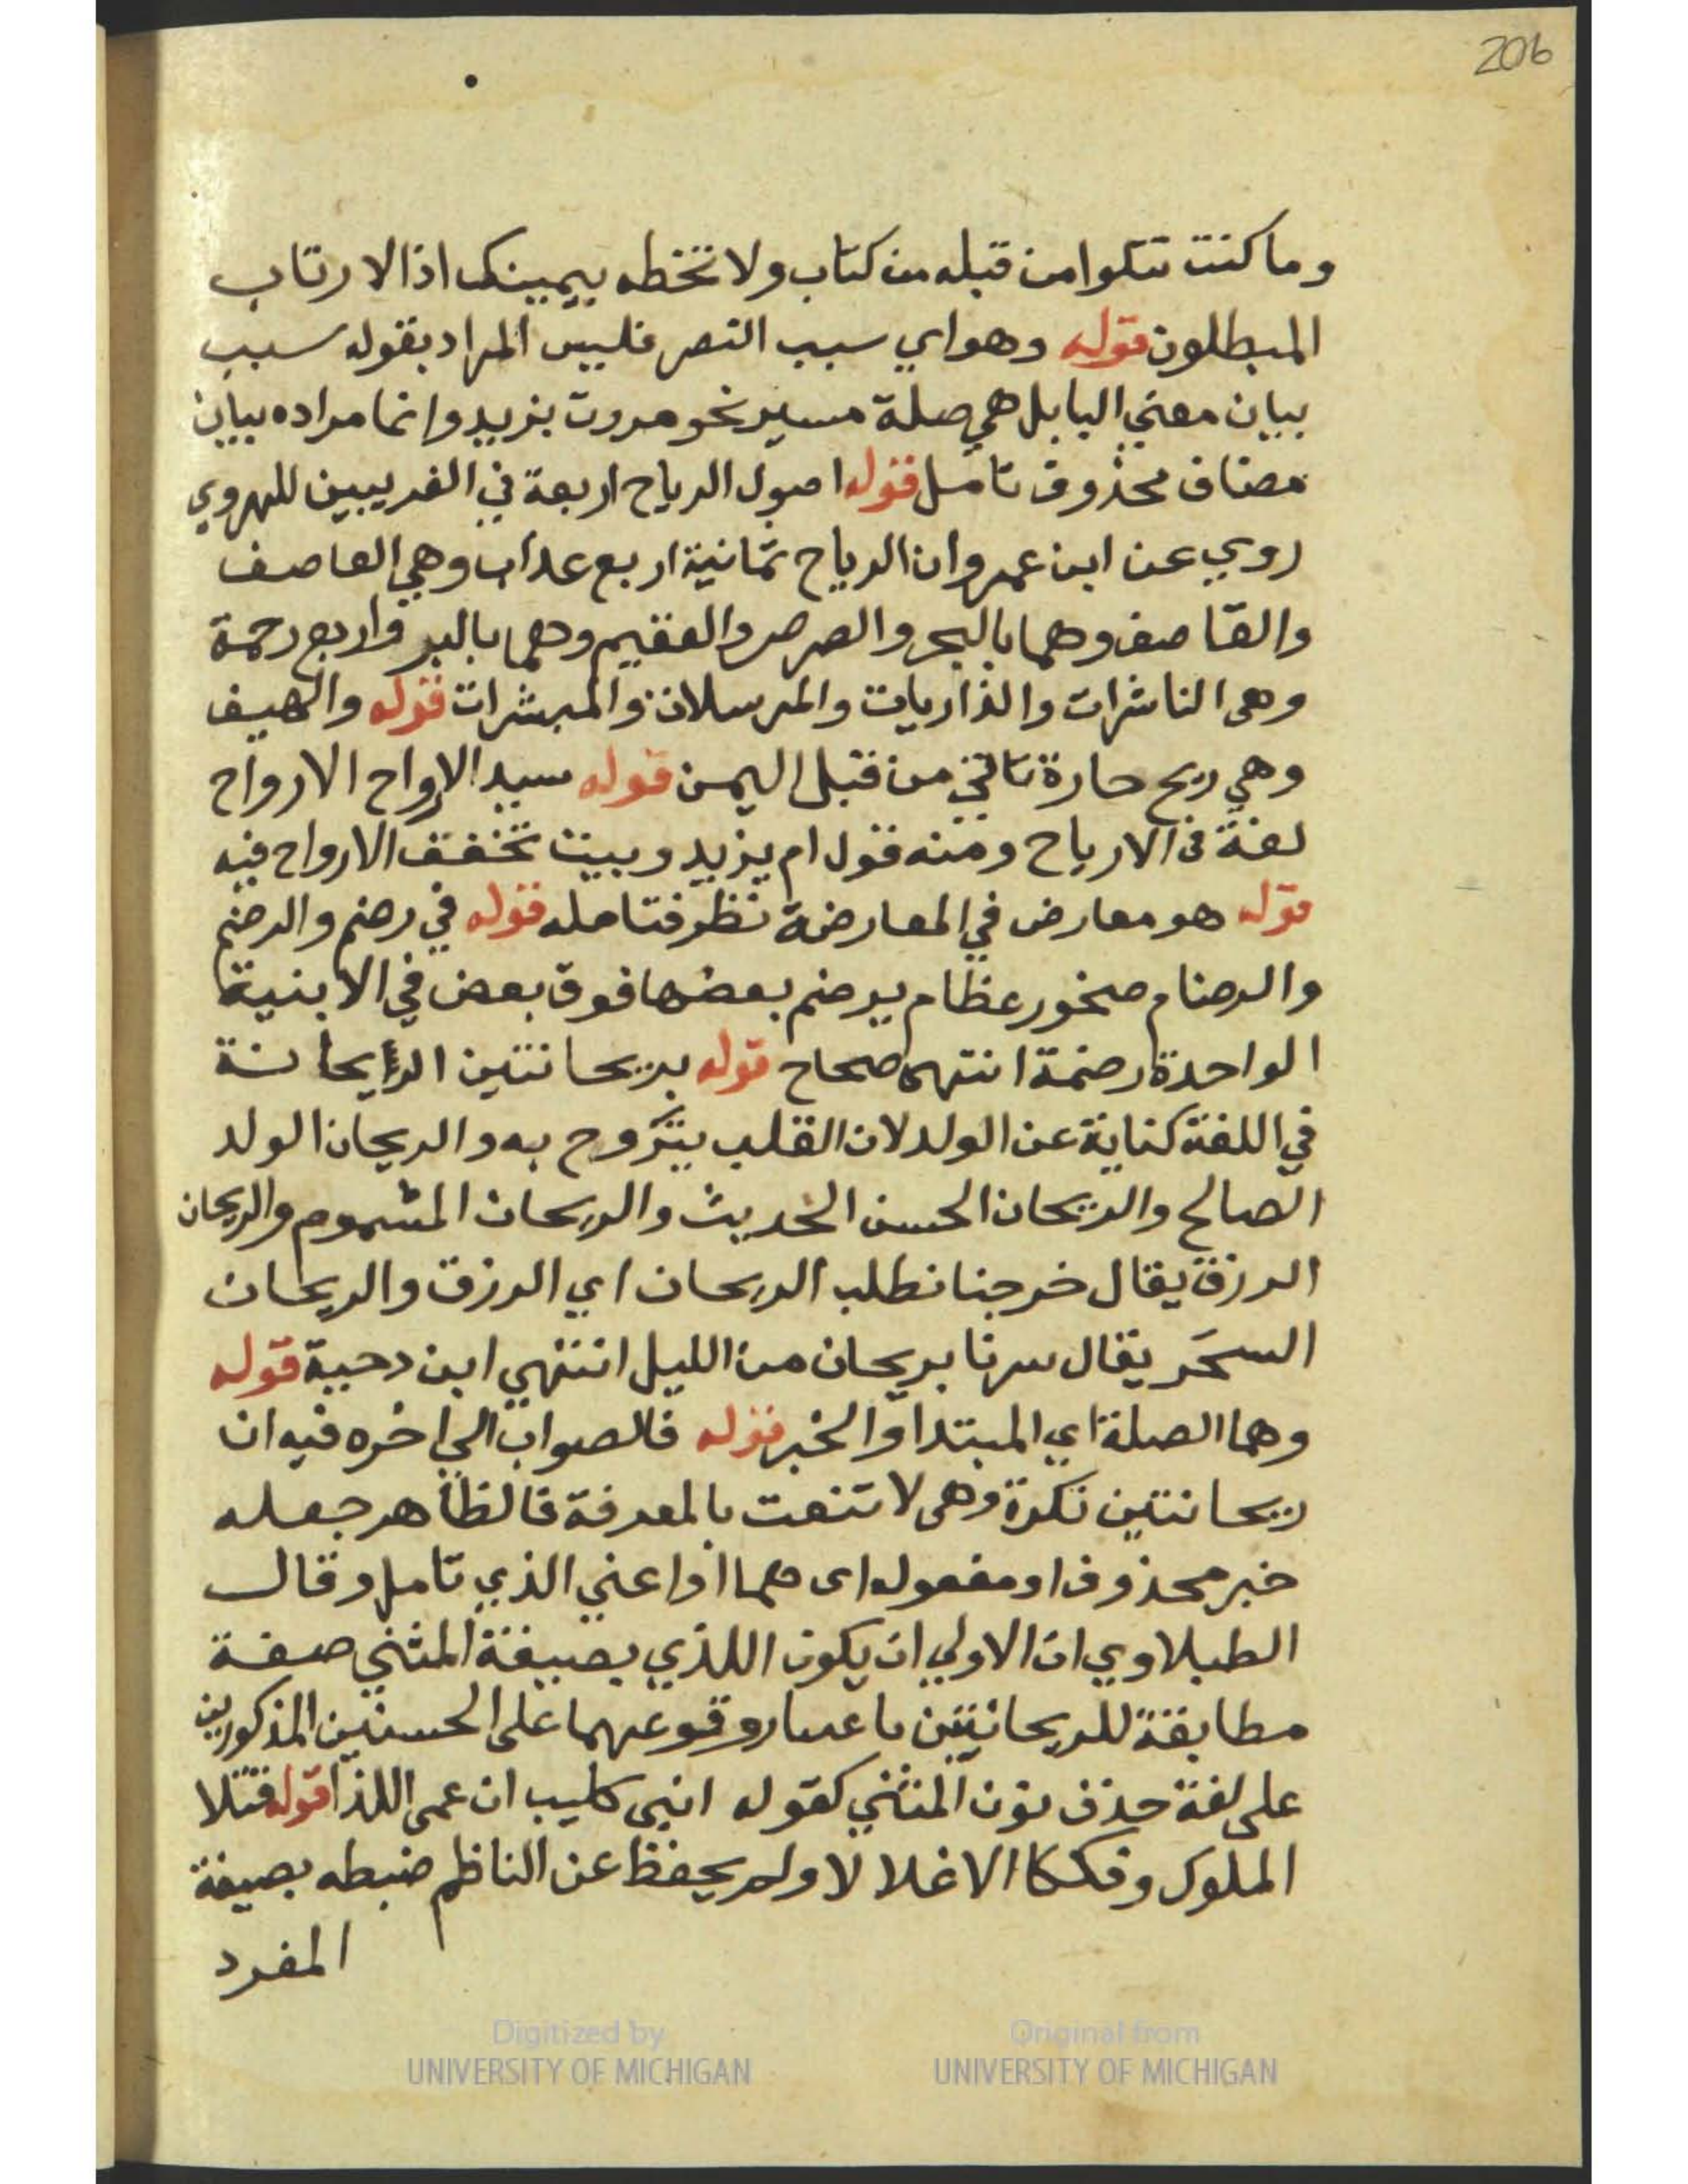 206
وما كنت تتلوا من قبله من كتاب ولا تخطه بيمينك اذا الارتاب
المبطلون قوله وهو اي سبب النصر فليس المراد بقوله سبب
بيان معني البا بل هي صلة مسير نحو مررت بزيد وانما مراده بيان
مضاف محذوف تامل قوله اصول الرياح اربعة في الغريبين للهروي
روي عن ابن عمرو ان الرياح ثمانية اربع عداب وهي العاصف
والقاصف وهما بالبحر والصرصر والعقيم وهما بالبر واربع رحمة
وهي الناشرات والذاريات والمرسلات والمبشرات قوله والهيف
وهي ريح حارة تاتي من قبل اليمن قوله سيد الارواح الارواح
لغة في الارياح ومنه قول ام يزيد وبيت تخفق الارواح فيه
قوله هو معارض في المعارضة نظر فتامله قوله في رضم والرضم
والرضام صخور عظام يرضم بعضها فوق بعض في الابنية
الواحدة رضمة انتهى صحاح قوله بريحانتين الريحانة
في اللغة كناية عن الولد لان القلب يتروح به والريحان الولد
الصالح والريحان الحسن الحديث والريحان المشموم والريحان
الرزق يقال خرجنا نطلب الريحان اي الرزق والريحان
السحر يقال سرنا بريحان من الليل انتهي ابن دحية قوله
وهما الصلة اي المبتدا والخبر قوله فالصواب الي اخره فيه ان
ريحانتين نكرة وهى لا تنعت بالمعرفة فالظاهر جعله
خبر محذوف او مفعوله اى هما او اعني الذي تامل وقال
الطبلاوي ان الاولي ان يكون اللذي بصيغة المثني صفة
مطابقة للريحانتين باعتبار وقوعهما على الحسنين المذكورين
على لغة حذف نون المثني كقوله ابني كليب ان عمى اللذا قوله قتلا
الملوك وفككا الاغلا لا ولم يحفظ عن الناظم ضبطه بصيغة
المفرد
Digitized by
UNIVERSITY OF MICHIGAN
Original from
UNIVERSITY OF MICHIGAN